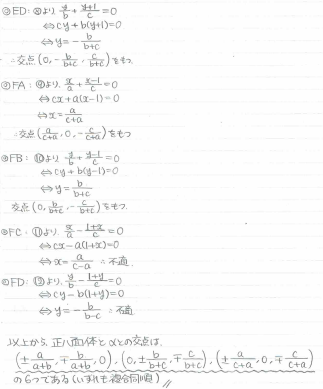 ◎ED: ⑧より y/b + (y+1)/c = 0
⇔ cy + b(y+1) = 0
⇔ y = - b/(b+c)
∴交点 (0, - b/(b+c), c/(b+c)) をもつ
◎FA: ⑨より x/a + (x-1)/c = 0
⇔ cx + a(x-1) = 0
⇔ x = a/(c+a)
∴交点 (a/(c+a), 0, - c/(c+a)) をもつ
◎FB: ⑩より y/b + (y-1)/c = 0
⇔ cy + b(y-1) = 0
⇔ y = b/(b+c)
交点 (0, b/(b+c), - c/(b+c)) をもつ.
◎FC: ⑪より x/a - (1+x)/c = 0
⇔ cx - a(1+x) = 0
⇔ x = a/(c-a) ∴不適
◎FD: ⑫より y/b - (1+y)/c = 0
⇔ cy - b(1+y) = 0
⇔ y = - b/(b-c) ∴不適
以上から, 正八面体とαとの交点は,
(± a/(a+b), ∓ b/(a+b), 0), (0, ± b/(b+c), ∓ c/(b+c)), (± a/(c+a), 0, ∓ c/(c+a))
の6つである (いずれも複号同順)